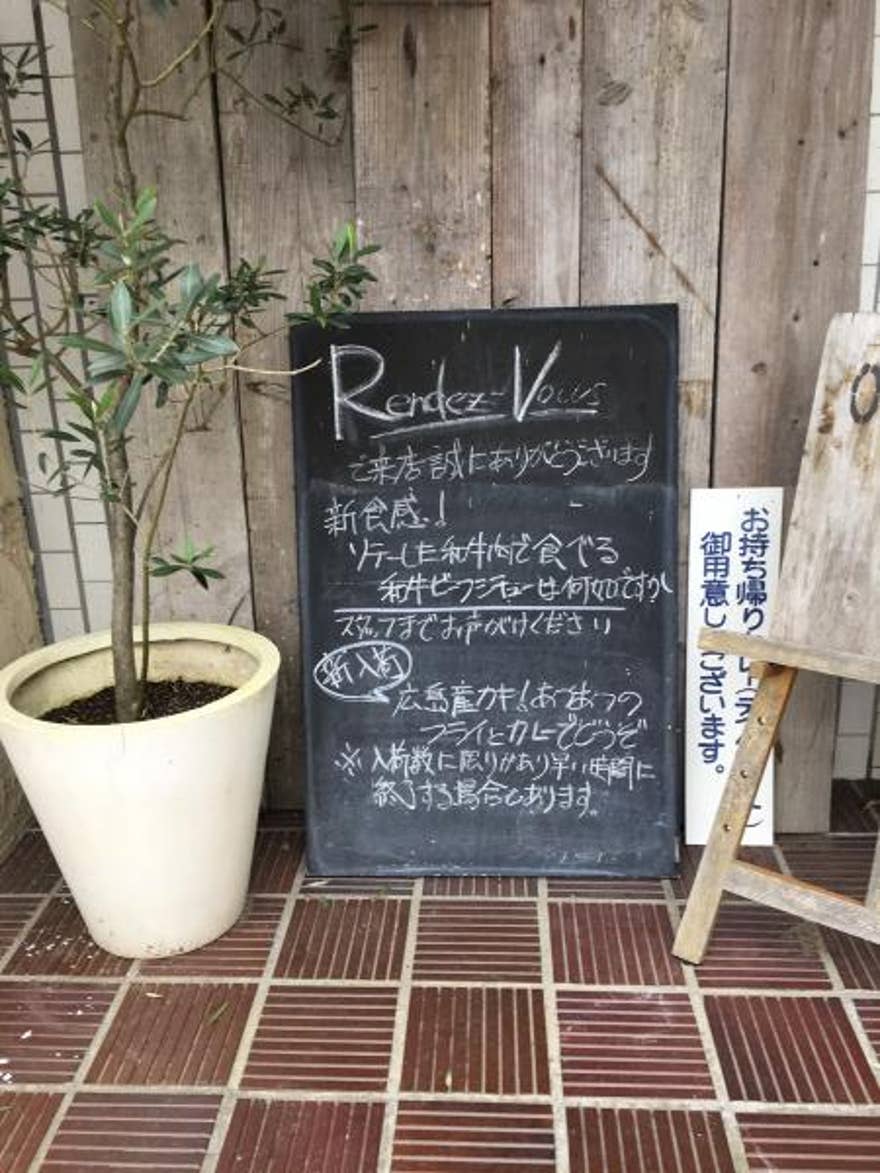 Rendez-Vous
ご来店誠にありがとうございます
新食感!
ソテーした和牛肉で食べる
和牛ビーフシチューは何如ですか
スタッフまでお声がけください
新入荷
広島産カキ!あつあつの
フライとカレーでどうぞ
※入荷数に限りがあり早い時間に
終了する場合もあります。
お持ち帰り
御用意し
ございます。